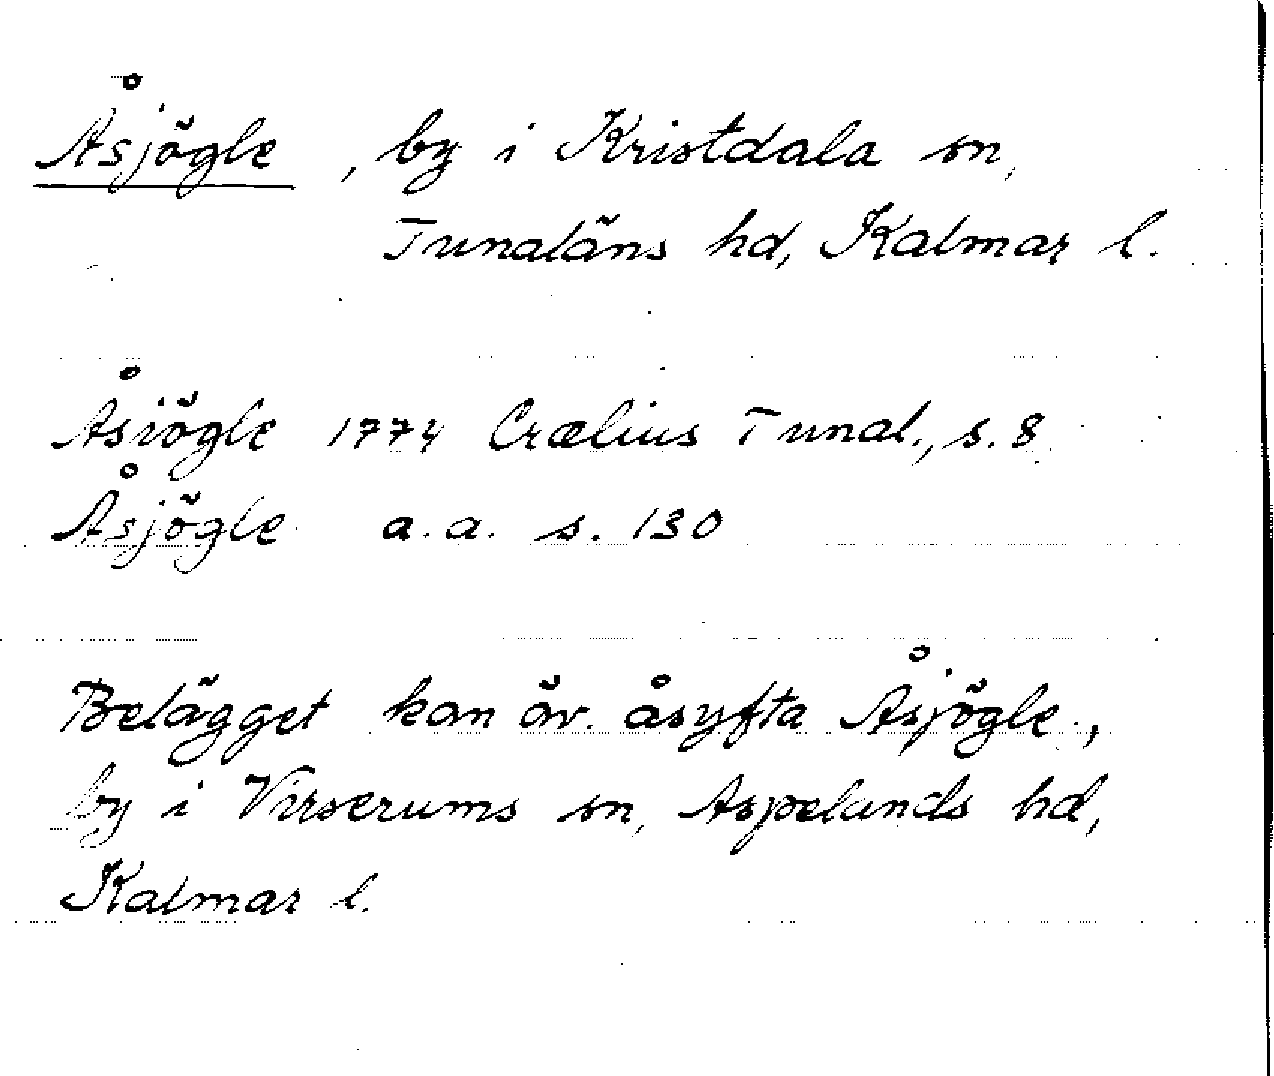 Åsjögle, by i Kristdala sn,
Tunaläns hd, Kalmar l.
Åsiögle 1774 Crælius Tunal., s. 8
Åsjögle a.a. s. 130
Belägget kan äv. åsyfta Åsjögle,
by i Virserums sn, Aspelands hd,
Kalmar l.